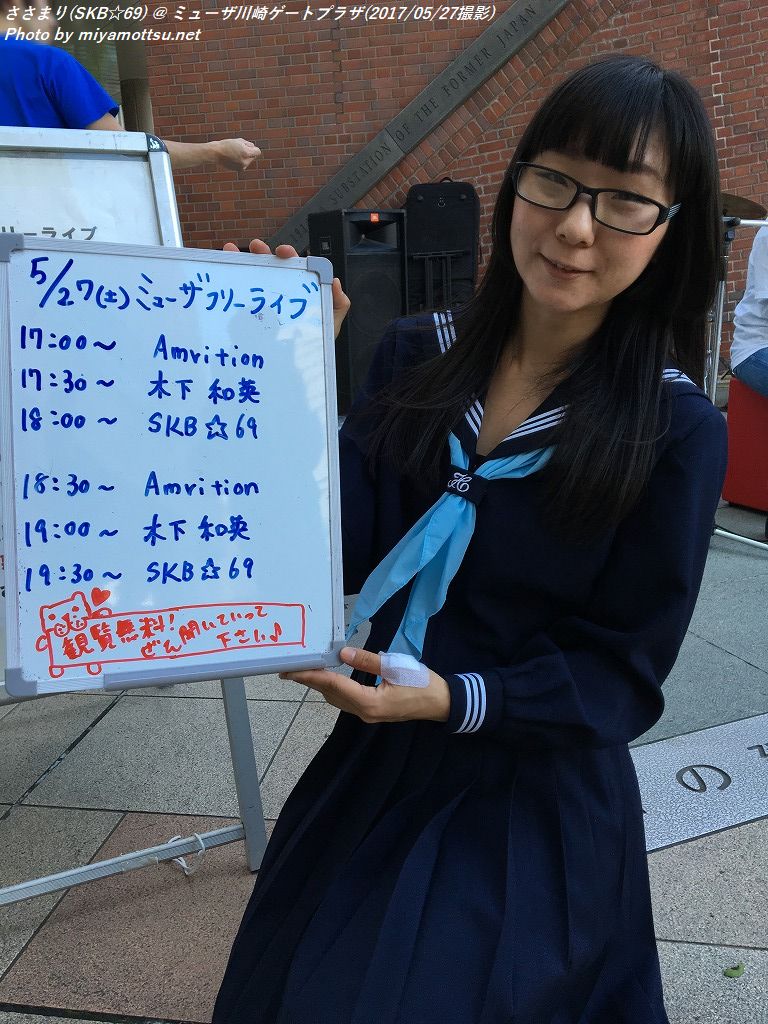 ささまり(SKB☆69) @ ミューザ川崎ゲートプラザ(2017/05/27撮影)
Photo by miyamottsu.net
SUBSTATION OF THE FORMER JAPAN
リーライブ
5/27(土) ミューザフリーライブ
17:00~ Amrition
17:30~ 木下 和英
18:00~ SKB☆69
18:30~ Amrition
19:00~ 木下 和英
19:30~ SKB☆69
観覧無料!
ぜひ聞いていって
下さい♪
JBL
の